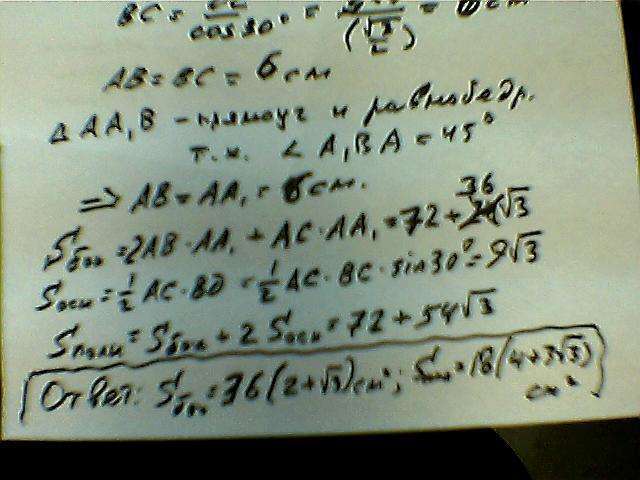 BC = cos30° = (√3/2) = 6 см
AB = BC = 6 см
△ AA₁B - прямоуг и равнобедр.
т.к. ∠ A₁BA = 45°
⇒ AB = AA₁ = 6 см.
Sбок = 2AB·AA₁ + AC·AA₁ = 72 + 36√3
Sосн = 1/2 AC·BD = 1/2 AC·BC·sin30° = 9√3
Sполн = Sбок + 2 Sосн = 72 + 54√3
Ответ: Sбок = 36(2+√3) см²; Sполн = 18(4+3√3)
см²